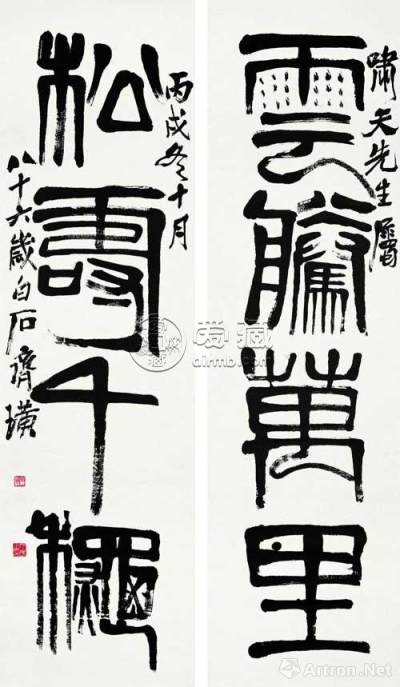 嘯天先生屬
雲騰萬里
丙戌冬十月
松壽千龝
八十六歲白石齊璜
爱藏
airmb.com
Artron.Net